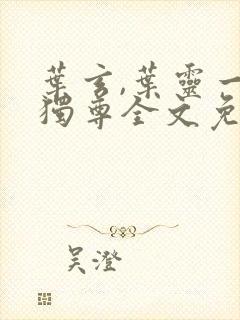 葉玄,葉靈一
獨尊全文免
吴澄